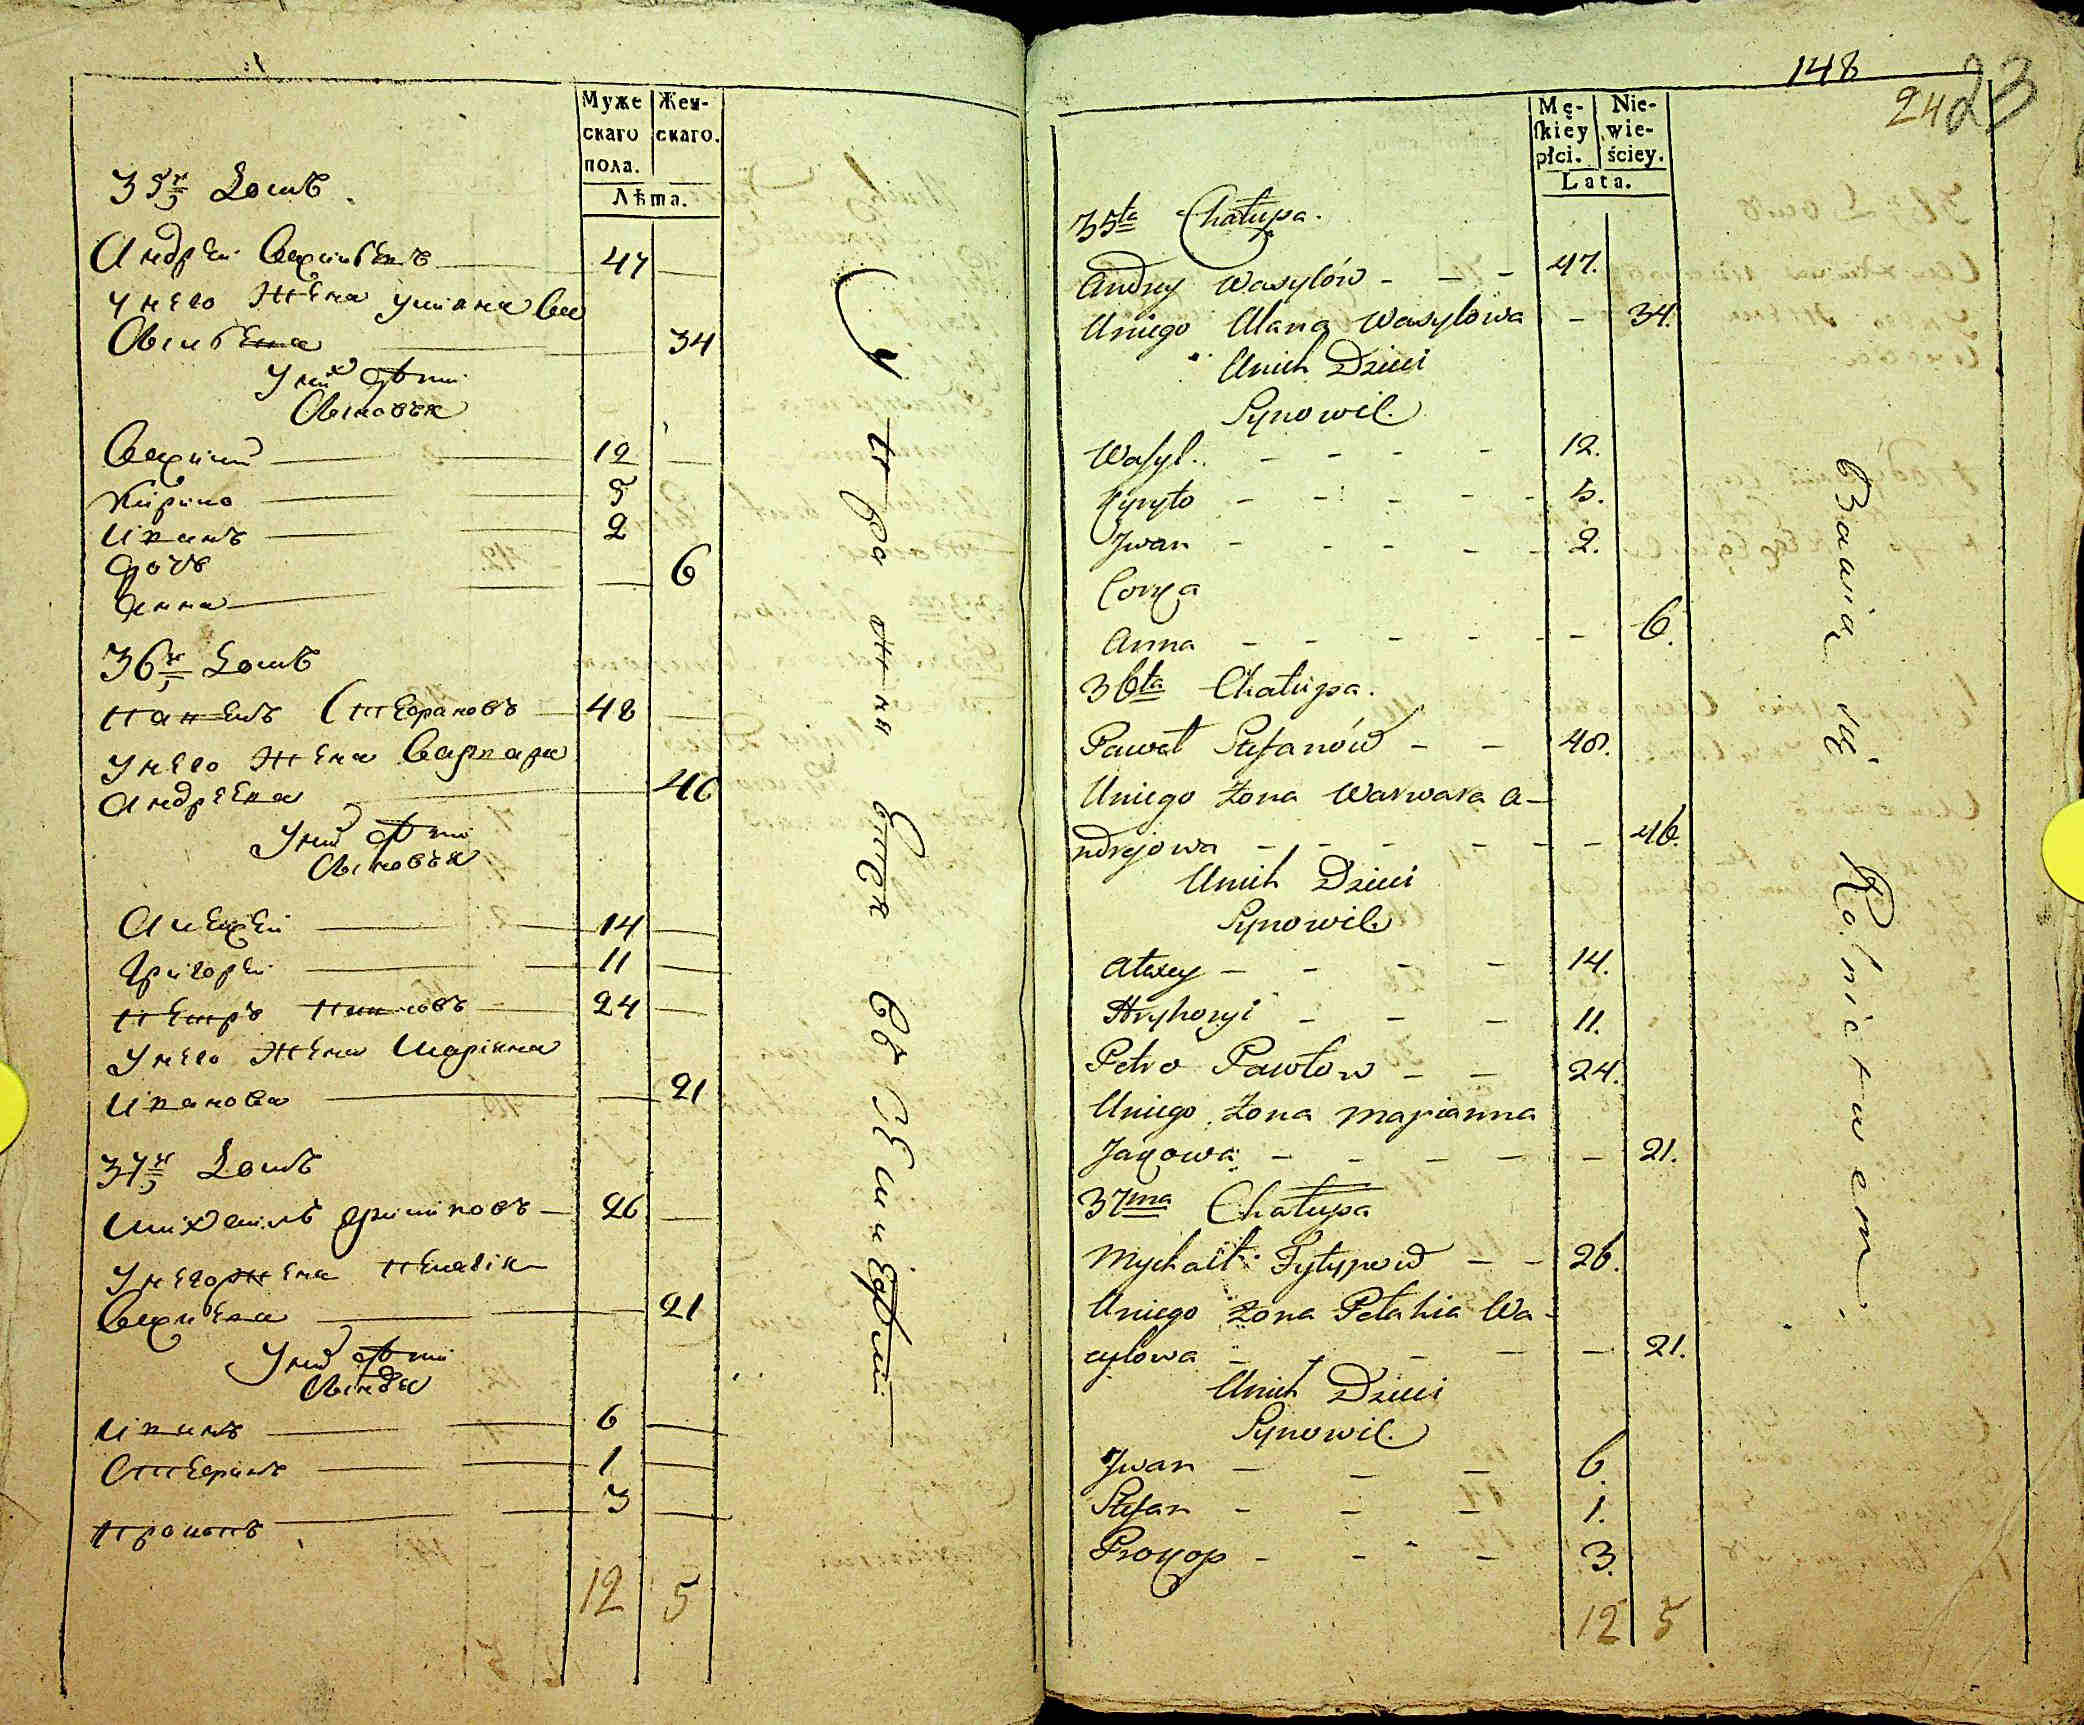 Муже
скаго
пола.
Жен-
скаго.
Лѣта.
35й Домъ
Андрей Васильевъ 47
У него жена Уліяна Ва
сильева 34
У них дѣти
Сыновья
Василий 12
Кирило 5
Иванъ 2
Дочь
Анна 6
36й Домъ
Павелъ Стефановъ 48
У него жена Варвара
Андреева 46
У них дѣти
Сыновья
Алексей 14
Григорей 11
Петръ Павловъ 24
У него жена Маріяна
Иванова 21
37й Домъ
Михаилъ Филиповъ 26
У него жена Пелагія
Васильева 21
У них дѣти
Сыновья
Иванъ 6
Стефанъ 1
Прокопъ 3
12 5
Упражняется въ земледѣлии
148
24 23
Mę-
skiey
płci.
Nie-
wie-
ściey.
Lata.
35ta Chałupa.
Andrey Wasylów - - - 47.
Uniego Ulana Wasylowa - 34.
Unich Dzieci
Synowie.
Wasyl. - - - - 12.
Kyryło - - - - - 5.
Jwan - - - - - 2.
Corka
Anna - - - - - - 6.
36ta Chałupa.
Paweł Stefanów - - 48.
Uniego Żona Warwara A-
ndrejowa - - - - - - 46.
Unich Dzieci
Synowie
Alexey - - - - 14.
Hryhoryi - - - 11.
Petro Pawłow - - 24.
Uniego Żona Maryanna
Janowa - - - - - 21.
37ma Chałupa
Mychaił Fylypow - - 26.
Uniego Żona Pełahia Wa-
sylowa - - - - - 21.
Unich Dzieci
Synowie.
Jwan - - - 6.
Stefan - - - 1.
Prokop - - - - 3.
12 5
Bawią się Rolnictwem.